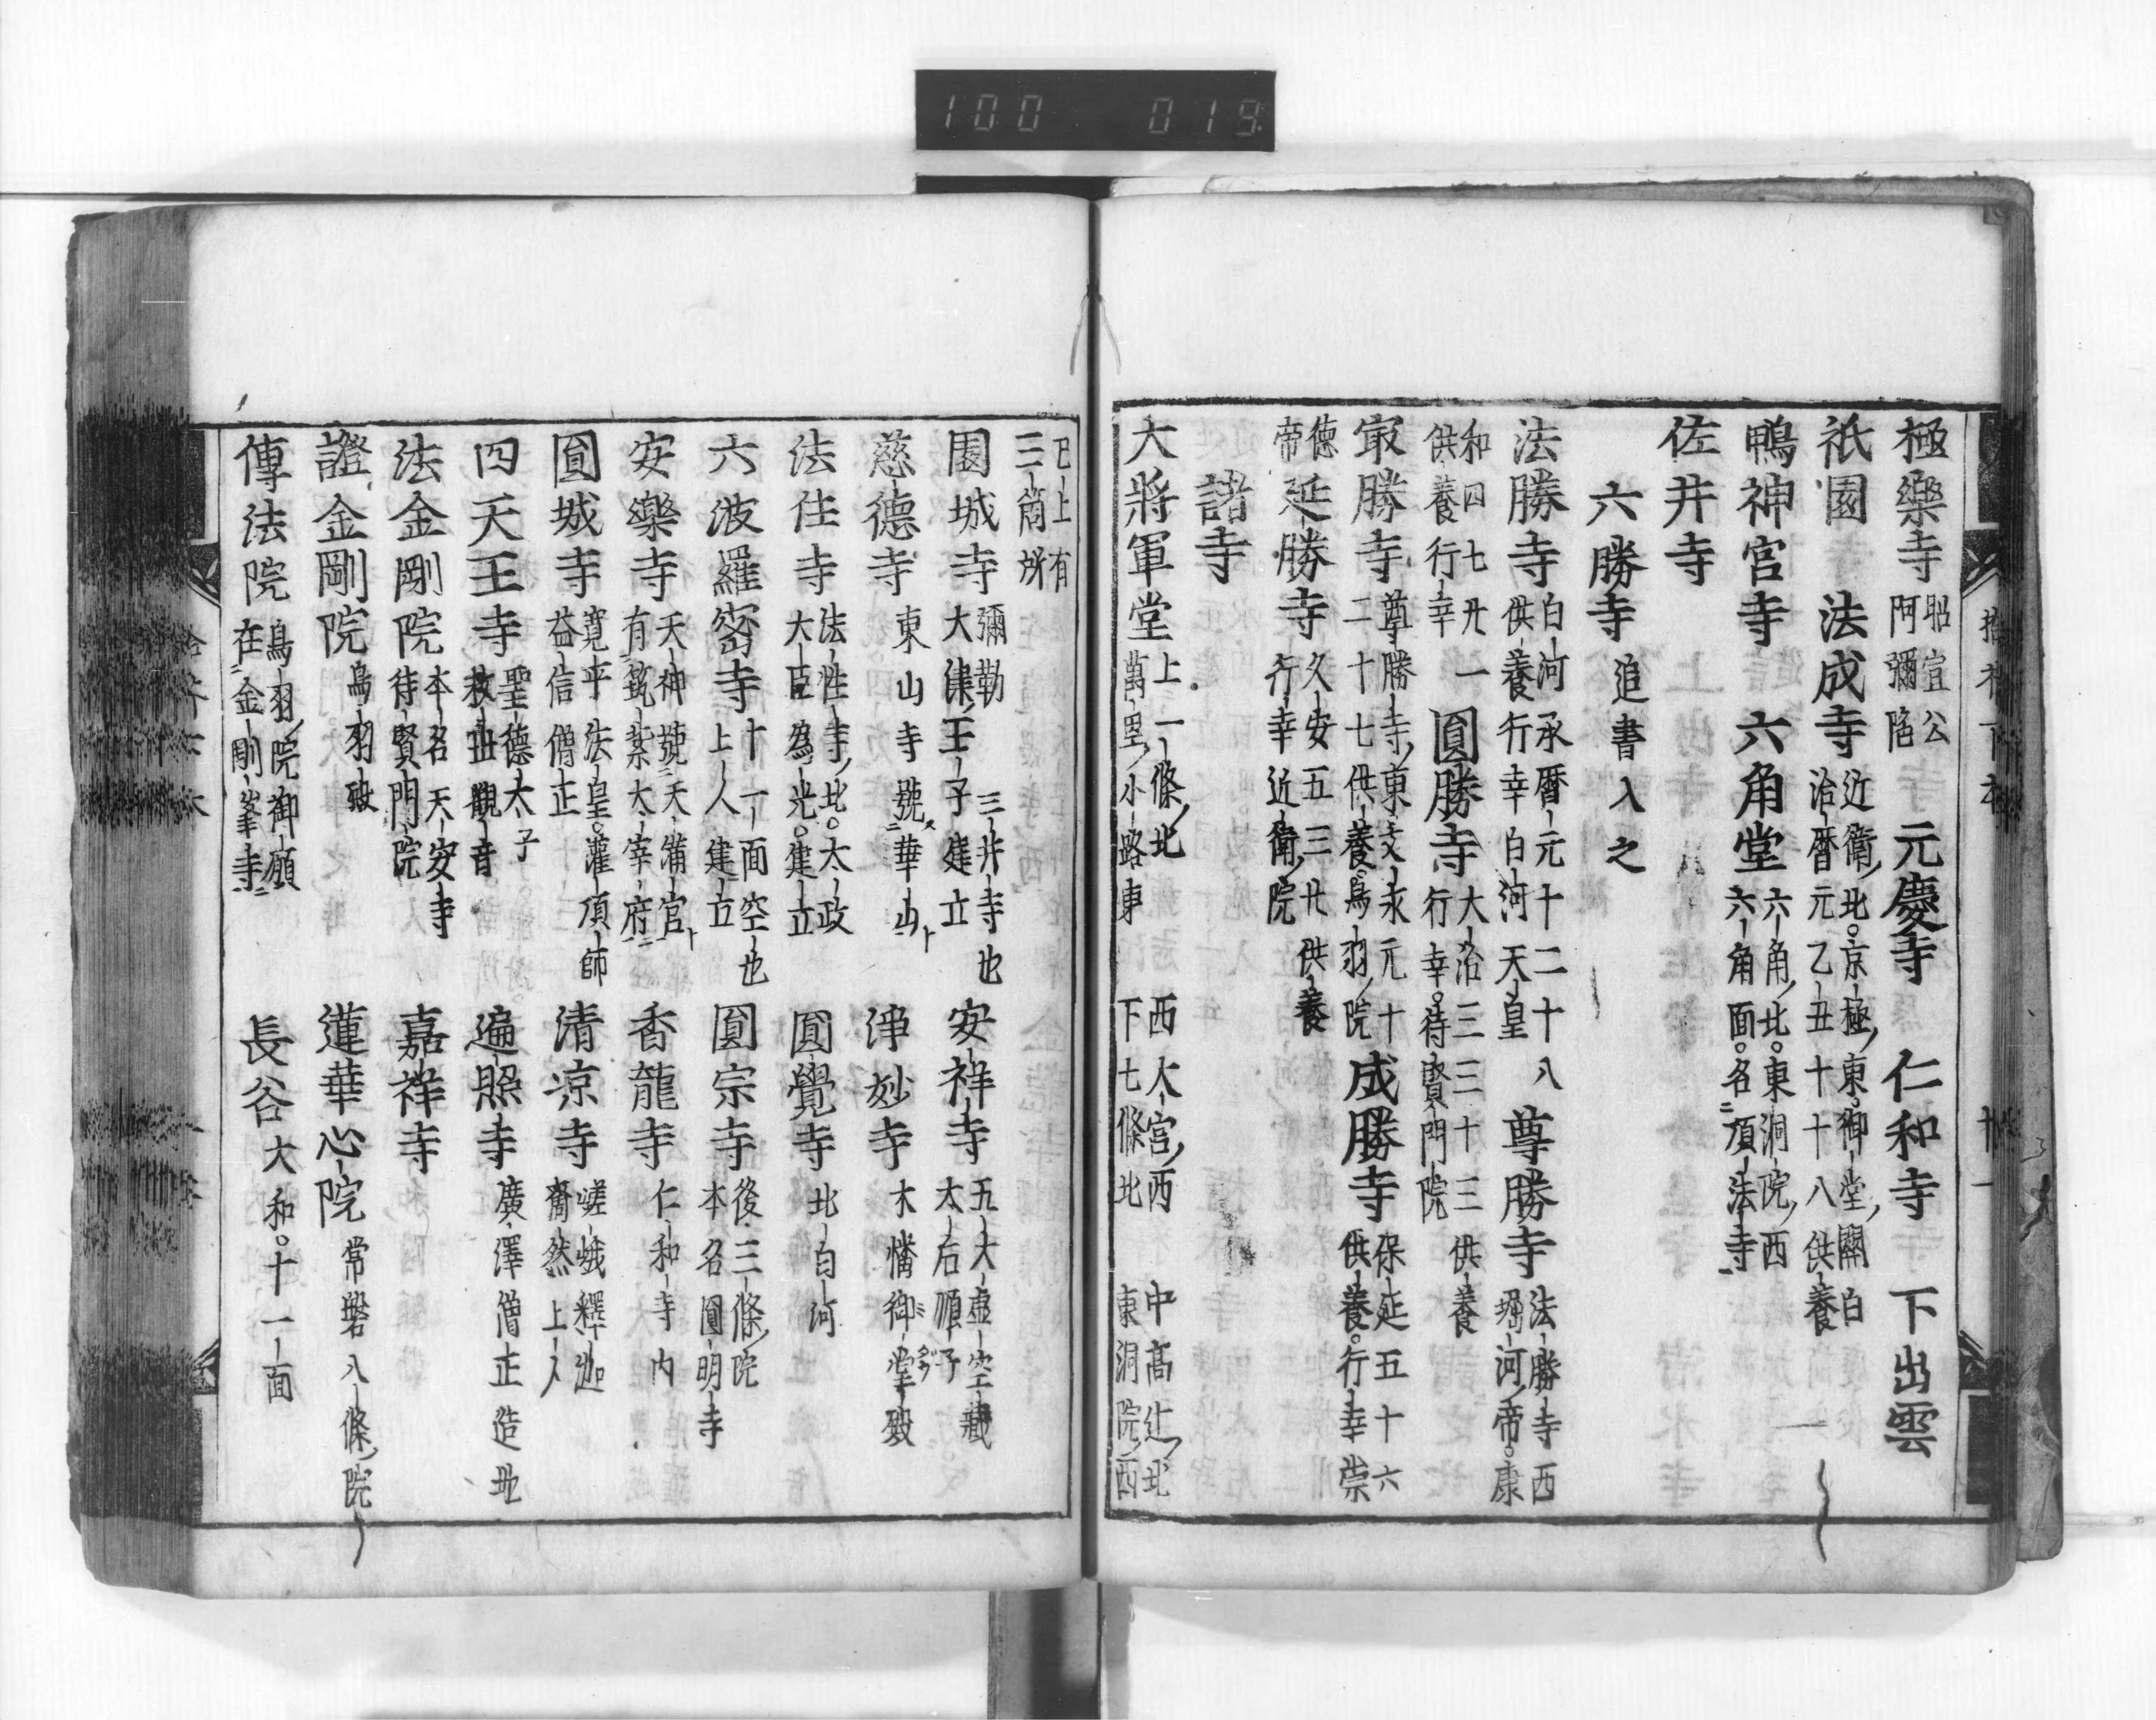 100 019
極樂寺 昭宣公 阿彌陀 元慶寺 仁和寺 下出雲
祇園 法成寺 近衛北。京極東。御堂關白 治暦元乙丑十十八供養
鴨神宮寺 六角堂 六角北。東洞院西 六角面。名頂法寺
佐井寺
六勝寺 追書入之
法勝寺 白河 承暦元十二十八 供養行幸 白河天皇 尊勝寺 法勝寺西 堀河帝。康
和四七廿一 供養行幸 圓勝寺 大治三三十三供養 行幸。待賢門院
㝡勝寺 尊勝寺東 元永元十二十七供養 鳥羽院 成勝寺 保延五十六 供養。行幸 崇
德帝 延勝寺 久安五三廿供養 行幸 近衛院
諸寺
大將軍堂 上一條北 萬里小路東 西大宮西 下七條北 中高辻北 東洞院西
已上有三箇所
園城寺 彌勒 三井寺也 大津王子建立 安祥寺 五大虚空藏 太后順子
慈德寺 東山寺 號華山 淨妙寺 木幡御堂
法住寺 法性寺北。太政大臣為光。建立 圓覺寺 北白河
六波羅密寺 十一面 空也上人建立 圓宗寺 後三條院 本名圓明寺
安樂寺 天神號天滿宮 有筑紫大宰府 香龍寺 仁和寺内
圓城寺 寛平法皇。灌頂師 益信僧正 清凉寺 嵯峨釋迦 奝然上人
四天王寺 聖德太子 救世觀音 遍照寺 廣澤僧正造地
法金剛院 本名天安寺 待賢門院 嘉祥寺
證金剛院 鳥羽殿 蓮華心院 常磐 八條院
傳法院 鳥羽院御願 在金剛峯寺 長谷 大和。十一面